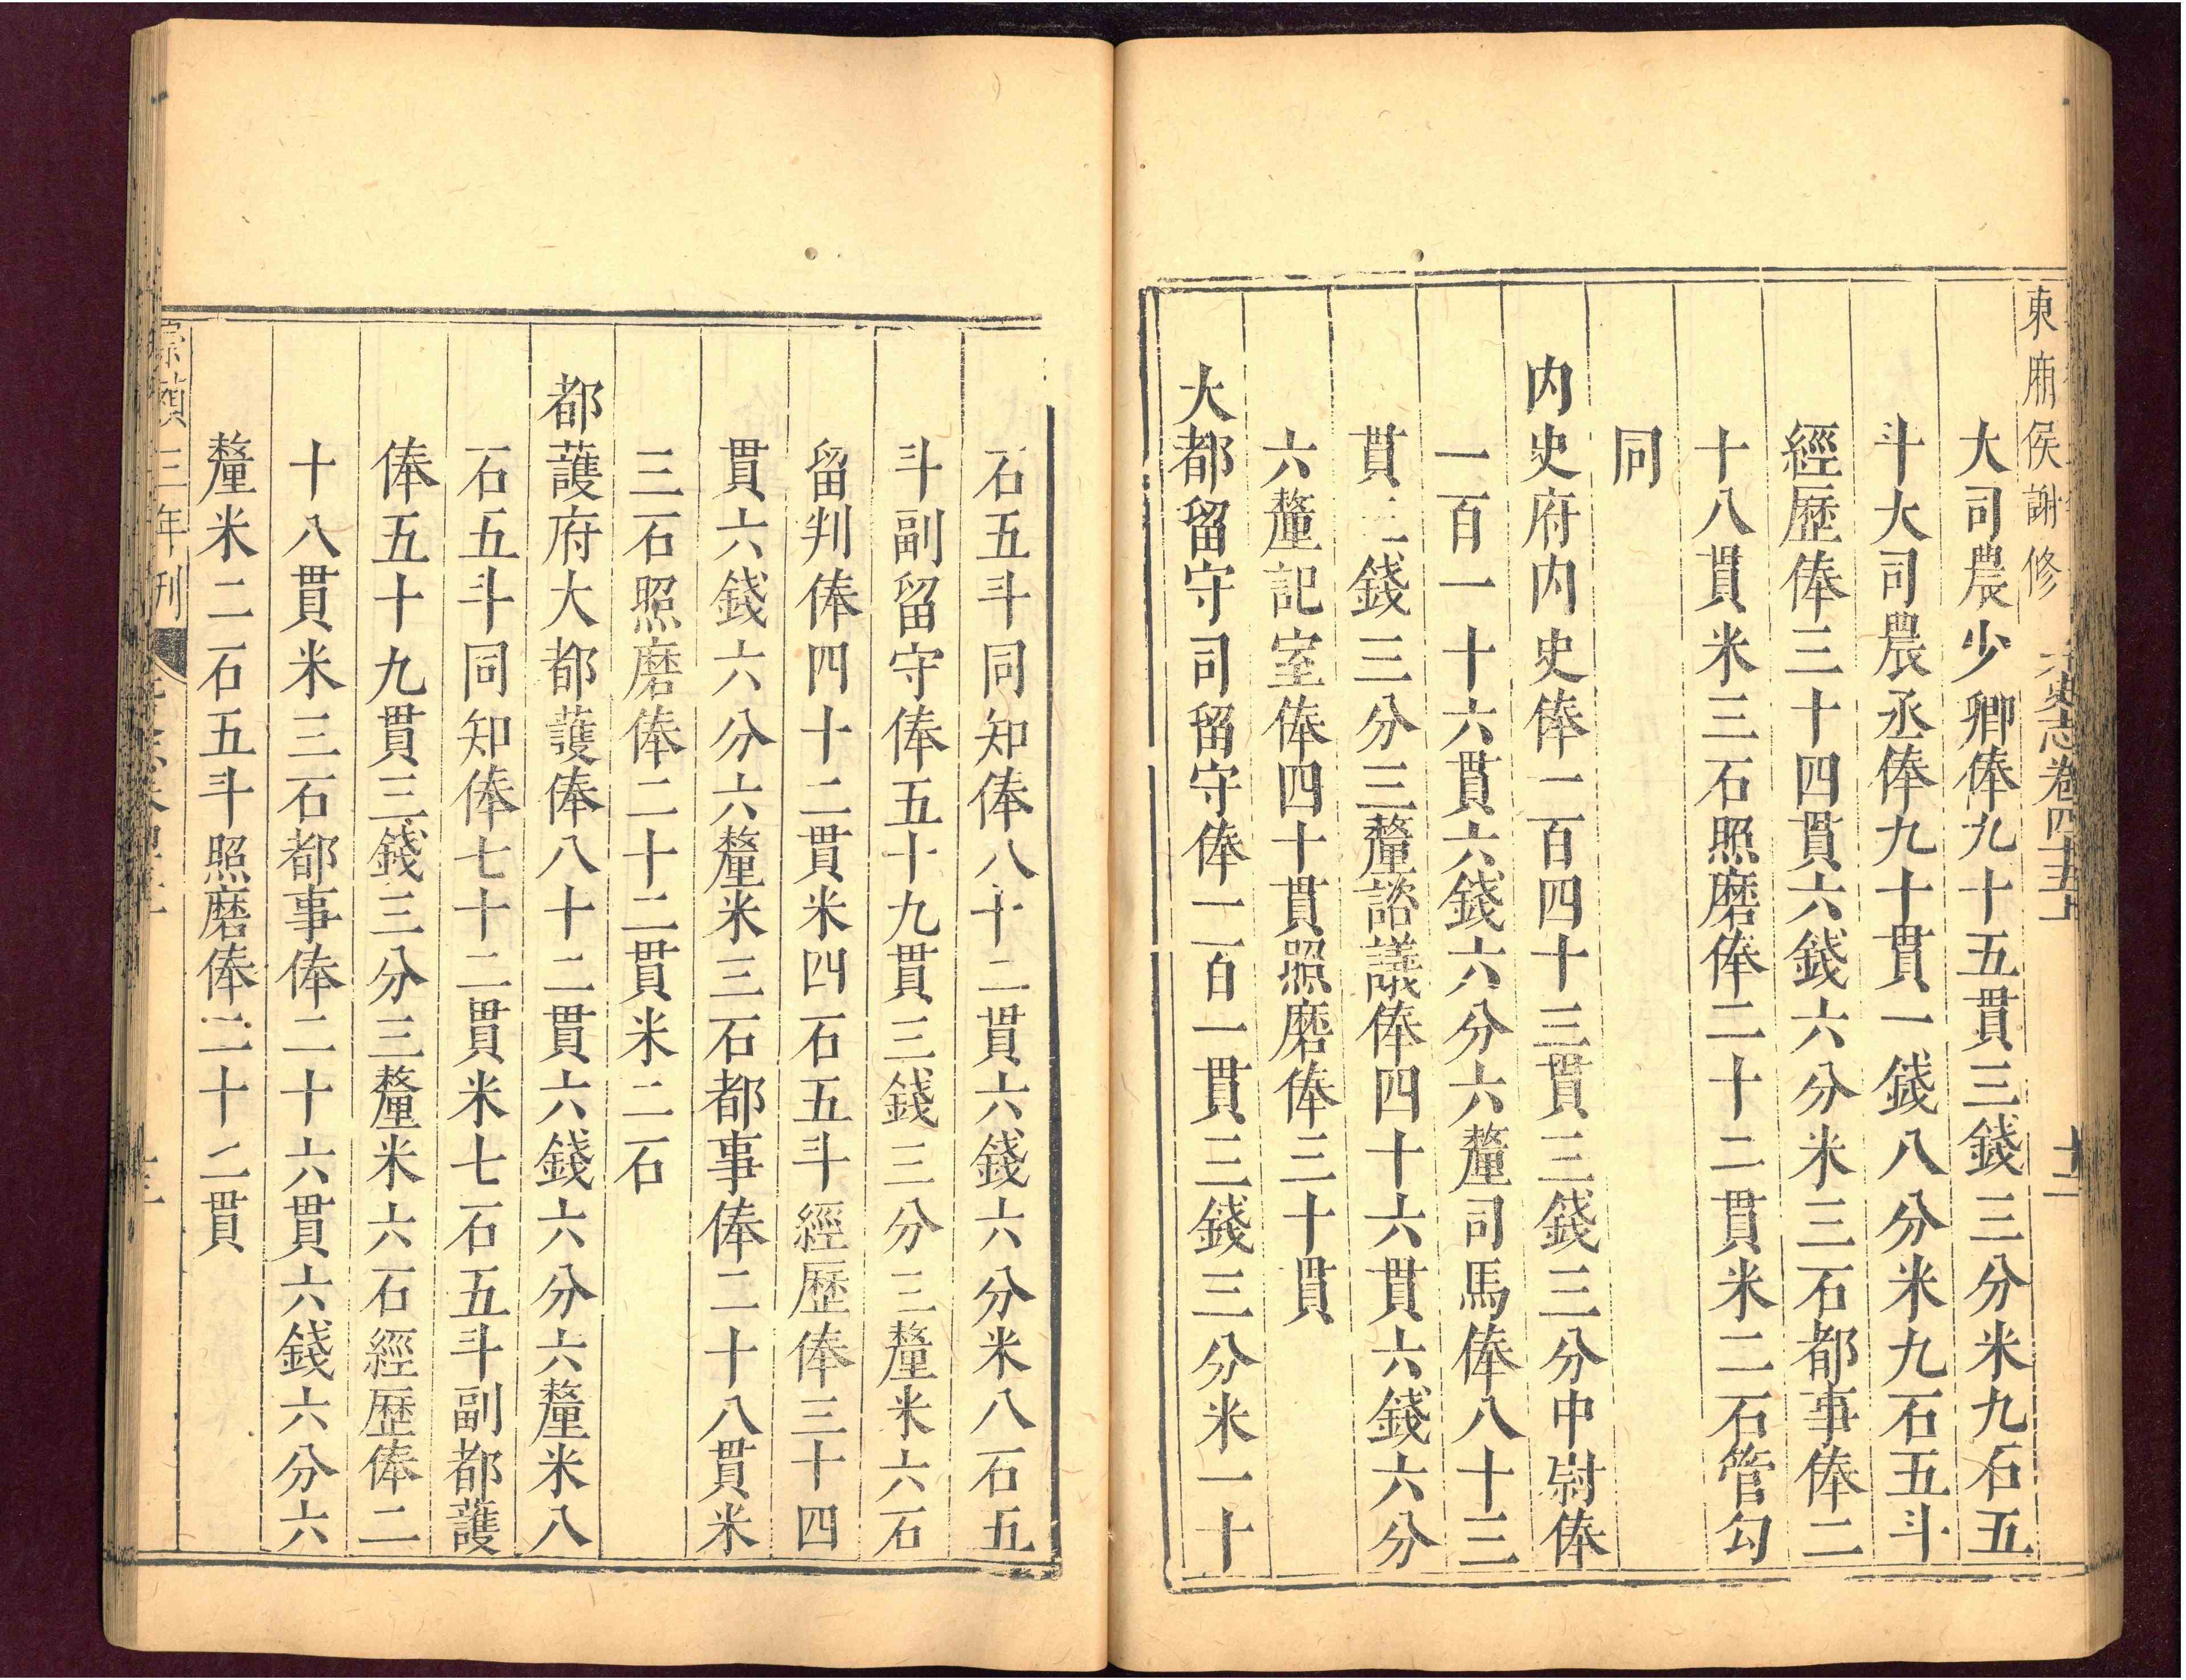 東廂侯謝修
元史志卷四十五上
十二
大司農少卿俸九十五貫三錢三分米九石五
斗大司農丞俸九十貫一錢八分米九石五斗
經歷俸三十四貫六錢六分米三石都事俸二
十八貫米三石照磨俸二十二貫米二石管勾
同
内史府内史俸一百四十三貫三錢三分中尉俸
一百一十六貫六錢六分六釐司馬俸八十三
貫三錢三分三釐諮議俸四十六貫六錢六分
六釐記室俸四十貫照磨俸三十貫
大都留守司留守俸一百一貫三錢三分米一十
石五斗同知俸八十二貫六錢六分米八石五
斗副留守俸五十九貫三錢三分三釐米六石
留判俸四十二貫米四石五斗經歷俸三十四
貫六錢六分六釐米三石都事俸二十八貫米
三石照磨俸二十二貫米二石
都護府大都護俸八十二貫六錢六分六釐米八
石五斗同知俸七十二貫米七石五斗副都護
俸五十九貫三錢三分三釐米六石經歷俸二
十八貫米三石都事俸二十六貫六錢六分六
釐米二石五斗照磨俸二十二貫
崇禎三年刊